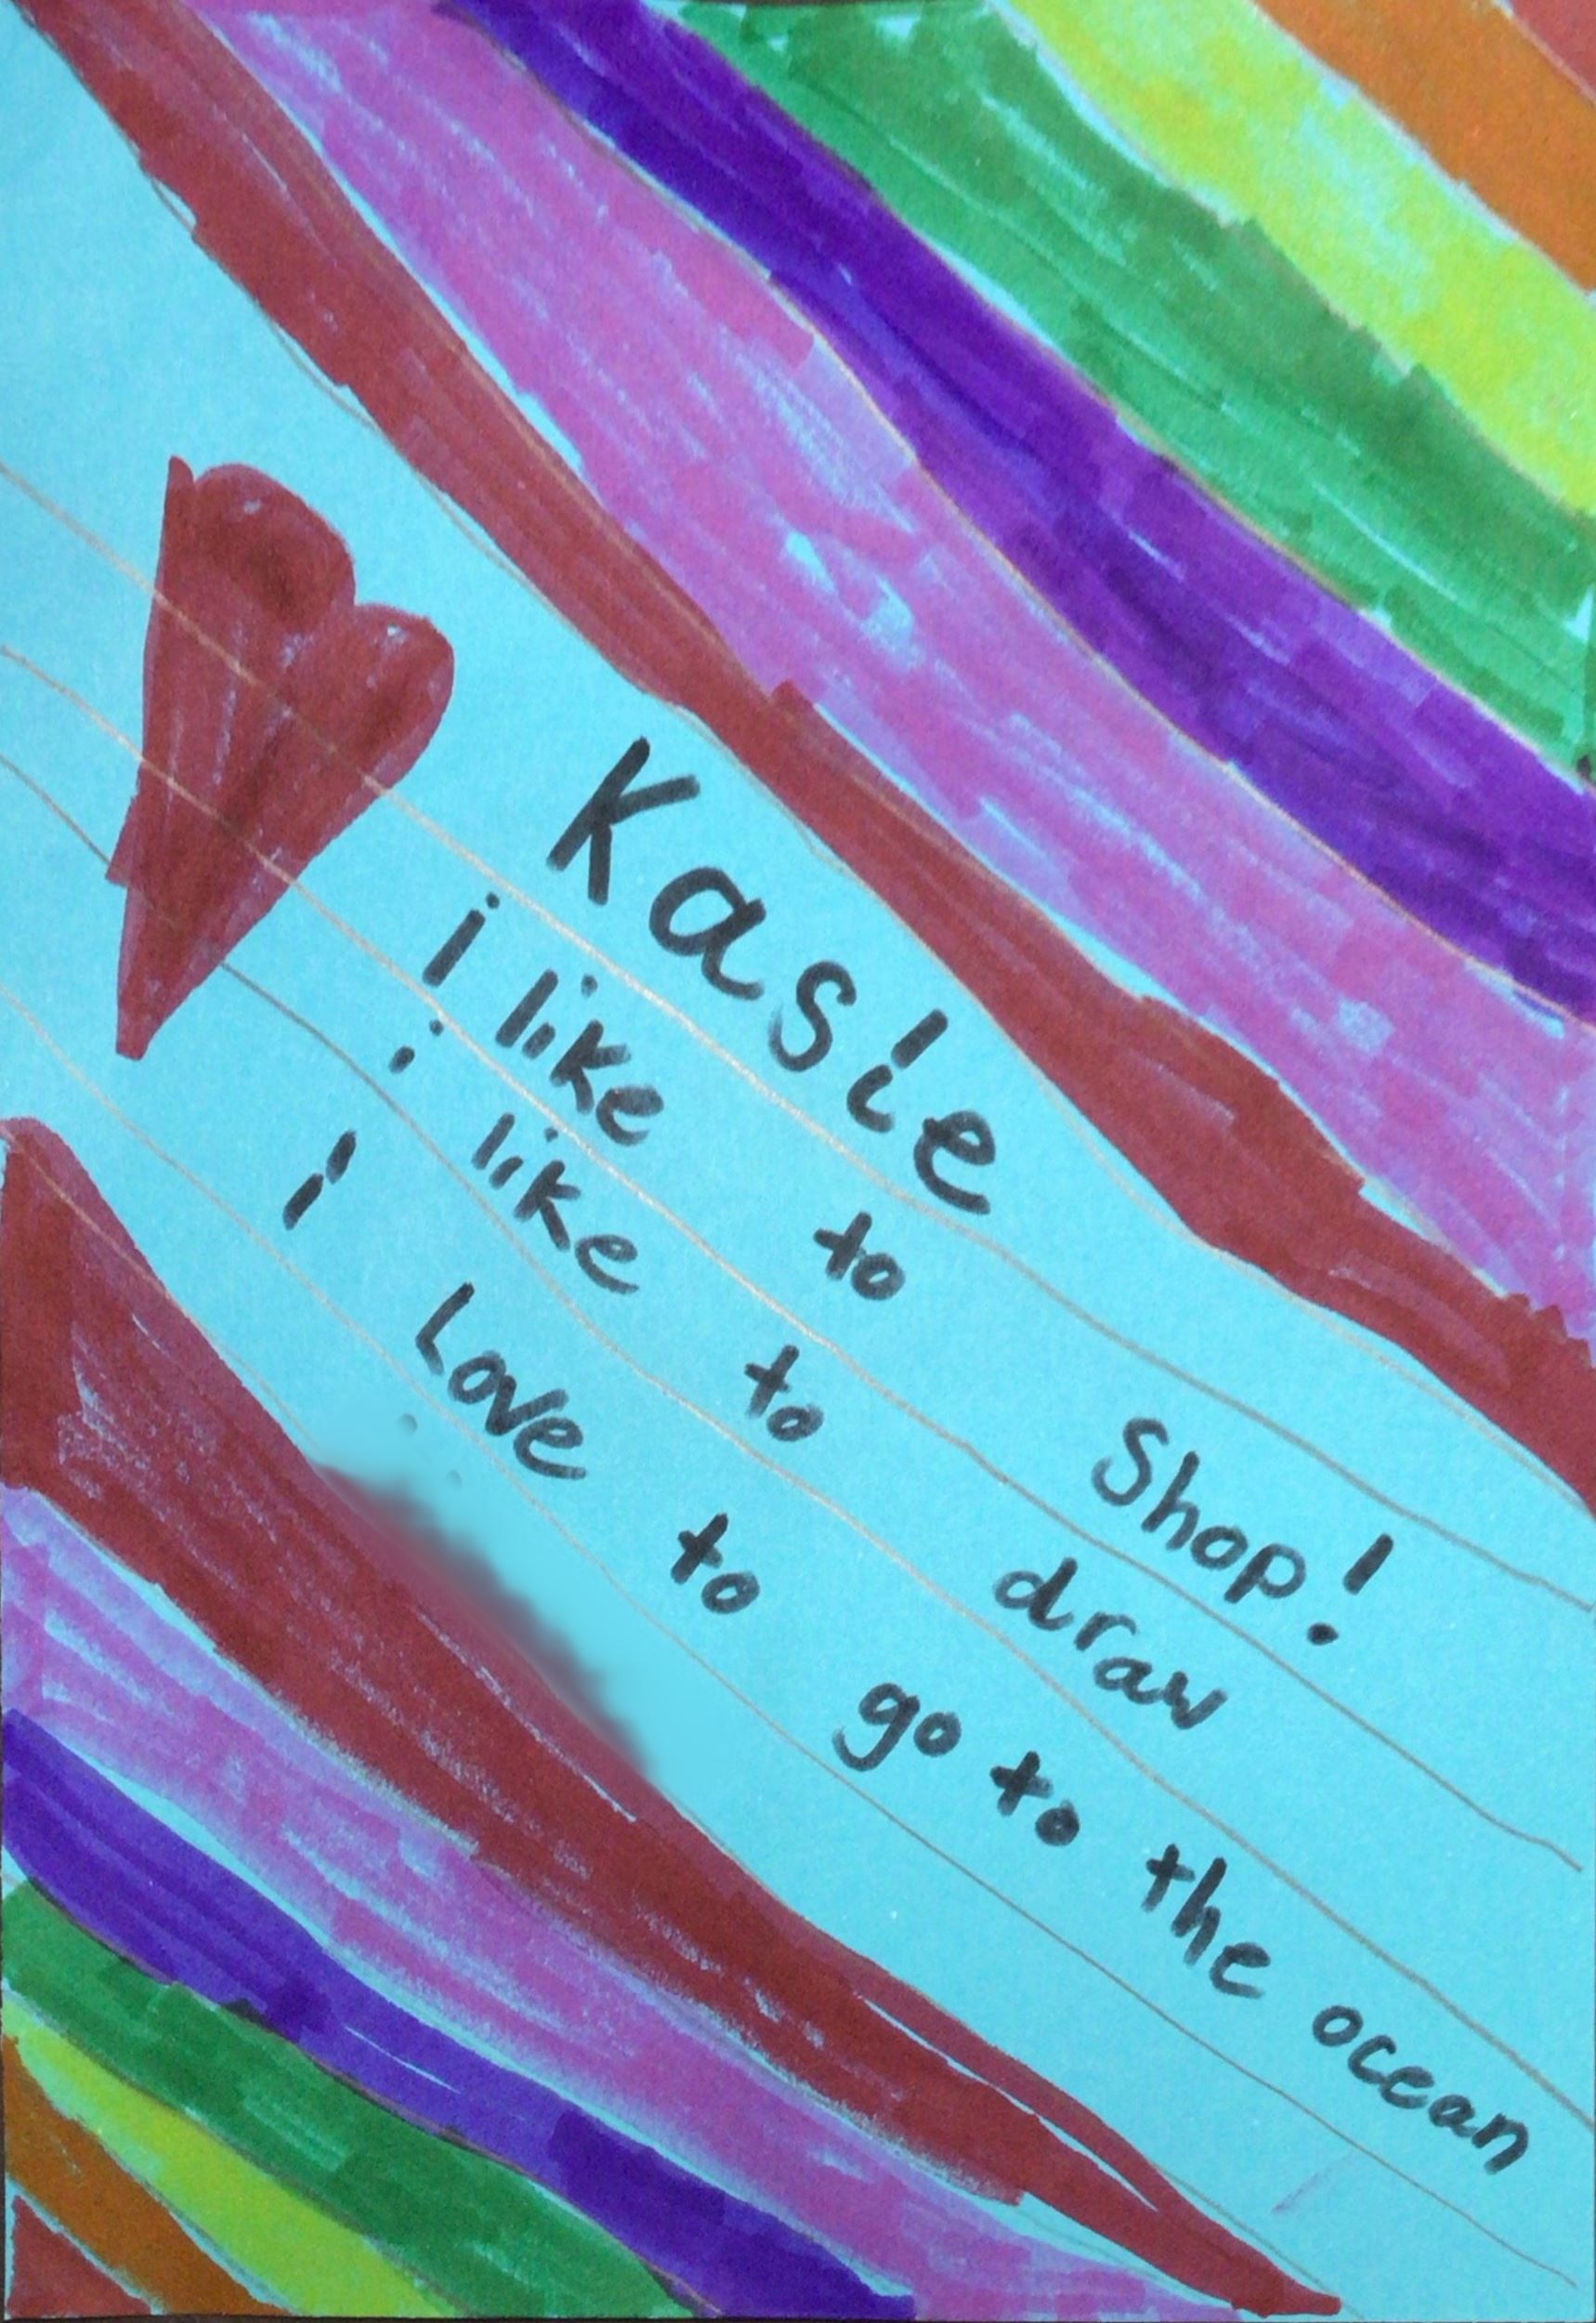 Kasie
i like to Shop!
i like to draw
i Love to go to the ocean